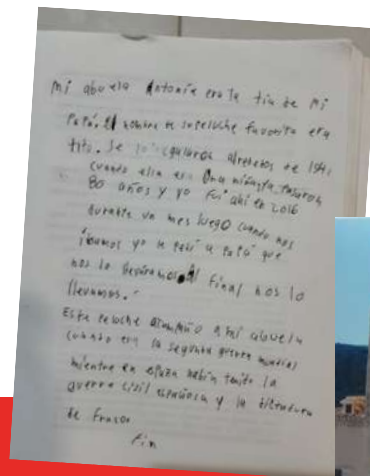 Mi abuela Antonia era la tia de Mi
Papá. El nombre de su peluche favorito era
titi. Se lo regalaron alrededor de 194
cuando ella era una niñasta, pasaron
80 años y yo fui ahi en 2016
durante un mes luego cuando nos
íbamos yo le pedí a papá que
nos lo lleváramos Al final nos lo
llevamos.
Este peluche acompaño a mi abuela
cuando era la segunda guerra mundial
mientre en españa había tenido la
guerra civil española y la dictadura
de Franco
Fin